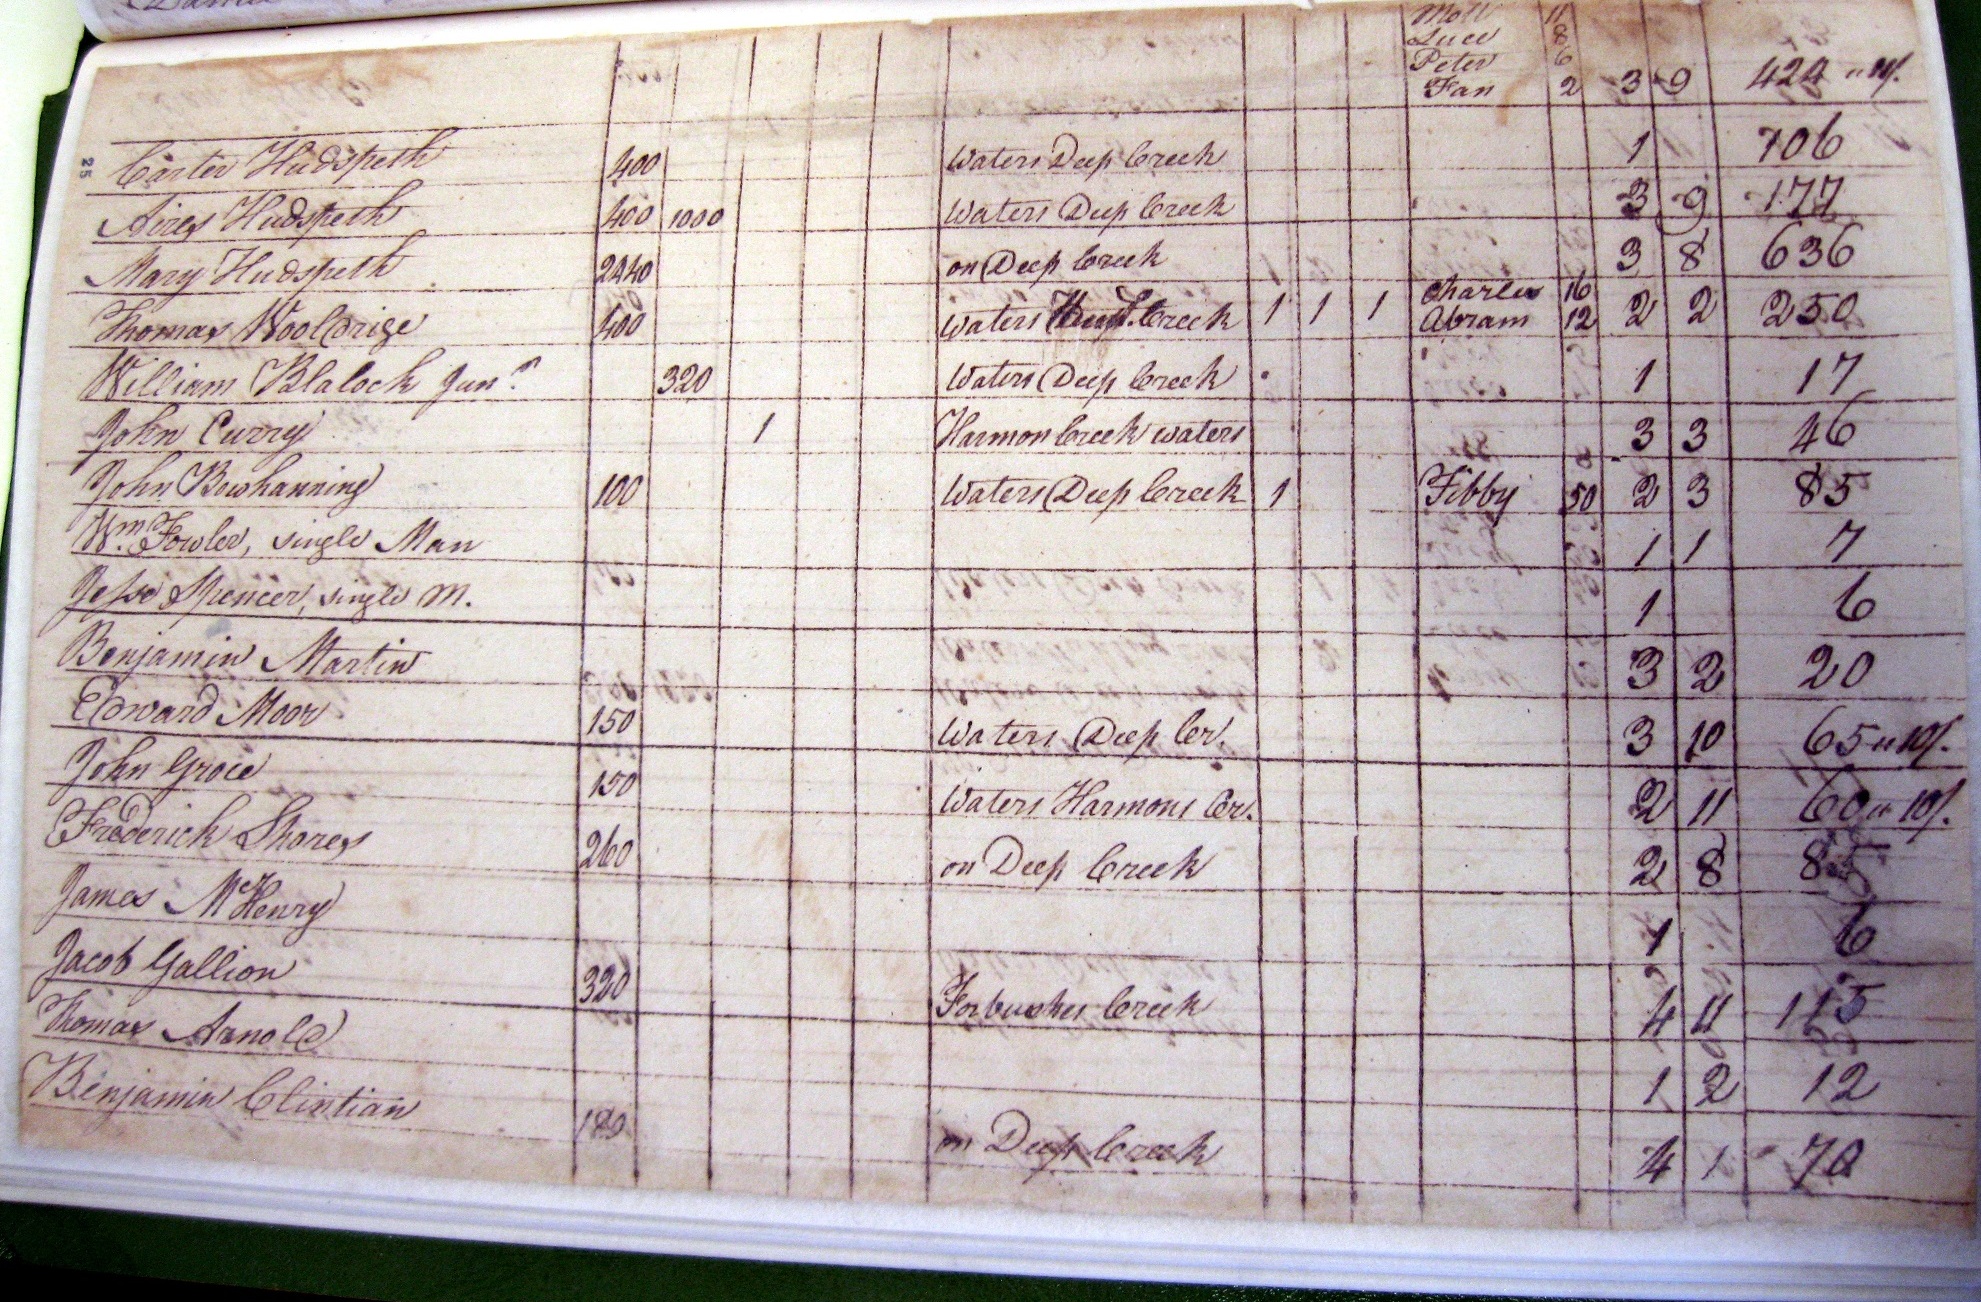 Moll 11
Luce 8
Peter 6
Fan 2 3 9 424 " 10/.
25
Carter Hudspeth 400 Waters Deep Creek 1 706
Aires Hudspeth 400 1000 Waters Deep Creek 3 9 177
Mary Hudspeth 2440 on Deep Creek 3 8 636
Thomas Wooldrige 400 Waters Creek 1 1 1 Charles 16 Abram 12 2 2 250
William Blalock Junr 320 Waters Deep Creek 1 17
John Curry 1 Harmon Creek waters 3 3 46
John Bowhanning 100 Waters Deep Creek 1 Fibby 50 2 3 85
Wm. Fowler, single Man 1 1 7
Jesse Spencer, single M. 1 6
Benjamin Martin 3 2 20
Edward Moor 150 Waters Deep Cr. 3 10 65 " 10/.
John Groce 150 Waters Harmons Cr. 2 11 60 " 10/.
Frederick Shores 260 on Deep Creek 2 8 85
James McHenry 1 6
Jacob Gallion 320 Forbushes Creek 4 11 115
Thomas Arnold 1 2 12
Benjamin Clintian 180 on Deep Creek 4 1 70